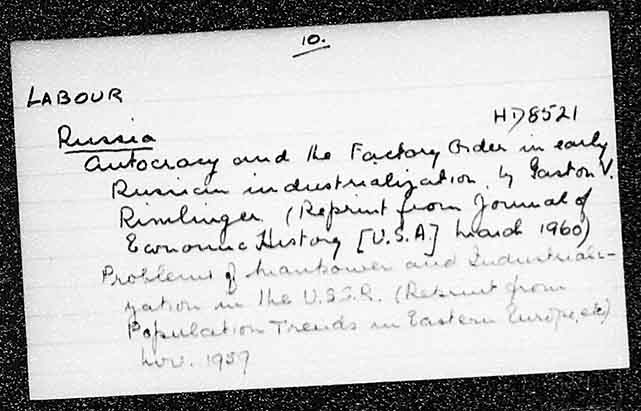 10.
LABOUR
HD8521
Russia
Autocracy and the Factory Order in early
Russian industrialization, by Gaston V.
Rimlinger (Reprint from Journal of
Economic History [U.S.A.] March 1960)
Problems of Manpower and Industriali-
zation in the U.S.S.R. (Reprint from
Population Trends in Eastern Europe, etc)
Nov. 1959